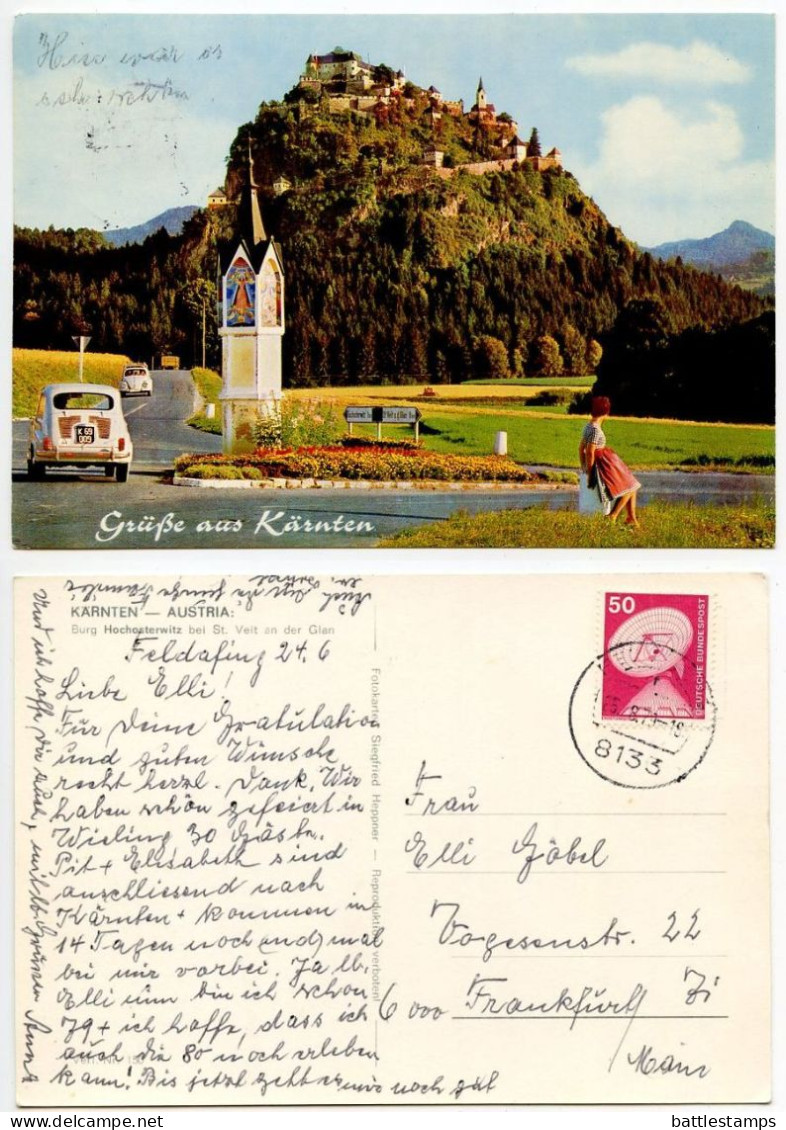 Hier war es
sehr schön
K 69
009
Grüße aus Kärnten
Auch für die ganze Familie
KÄRNTEN — AUSTRIA:
Burg Hochosterwitz bei St. Veit an der Glan
Feldafing 24.6
Liebe Elli!
Für Deine Gratulation
und guten Wünsche
recht herzl. Dank. Wir
haben schön gefeiert in
Wieling 30 Gäste.
Pit + Elisabeth sind
anschliesend nach
Kärnten + kommen in
14 Tagen noch (nd) mal
bei mir vorbei. Ja lb.
Elli nun bin ich schon
79 + ich hoffe, dass ich
auch die 80 noch erleben
kann! Bis jetzt geht er mir noch gut
Und ich hoffe, Dir auch, mit lb. Grüssen Anna
Fotokarten Siegfried Heppner — Reproduktion verboten!
50
DEUTSCHE BUNDESPOST
8133
Frau
Elli Göbel
Vogesenstr. 22
6000 Frankfurt/
Main
battlestamps
delcampe.net